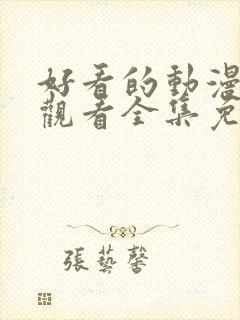 好看的動漫
觀看全集免
張藝馨